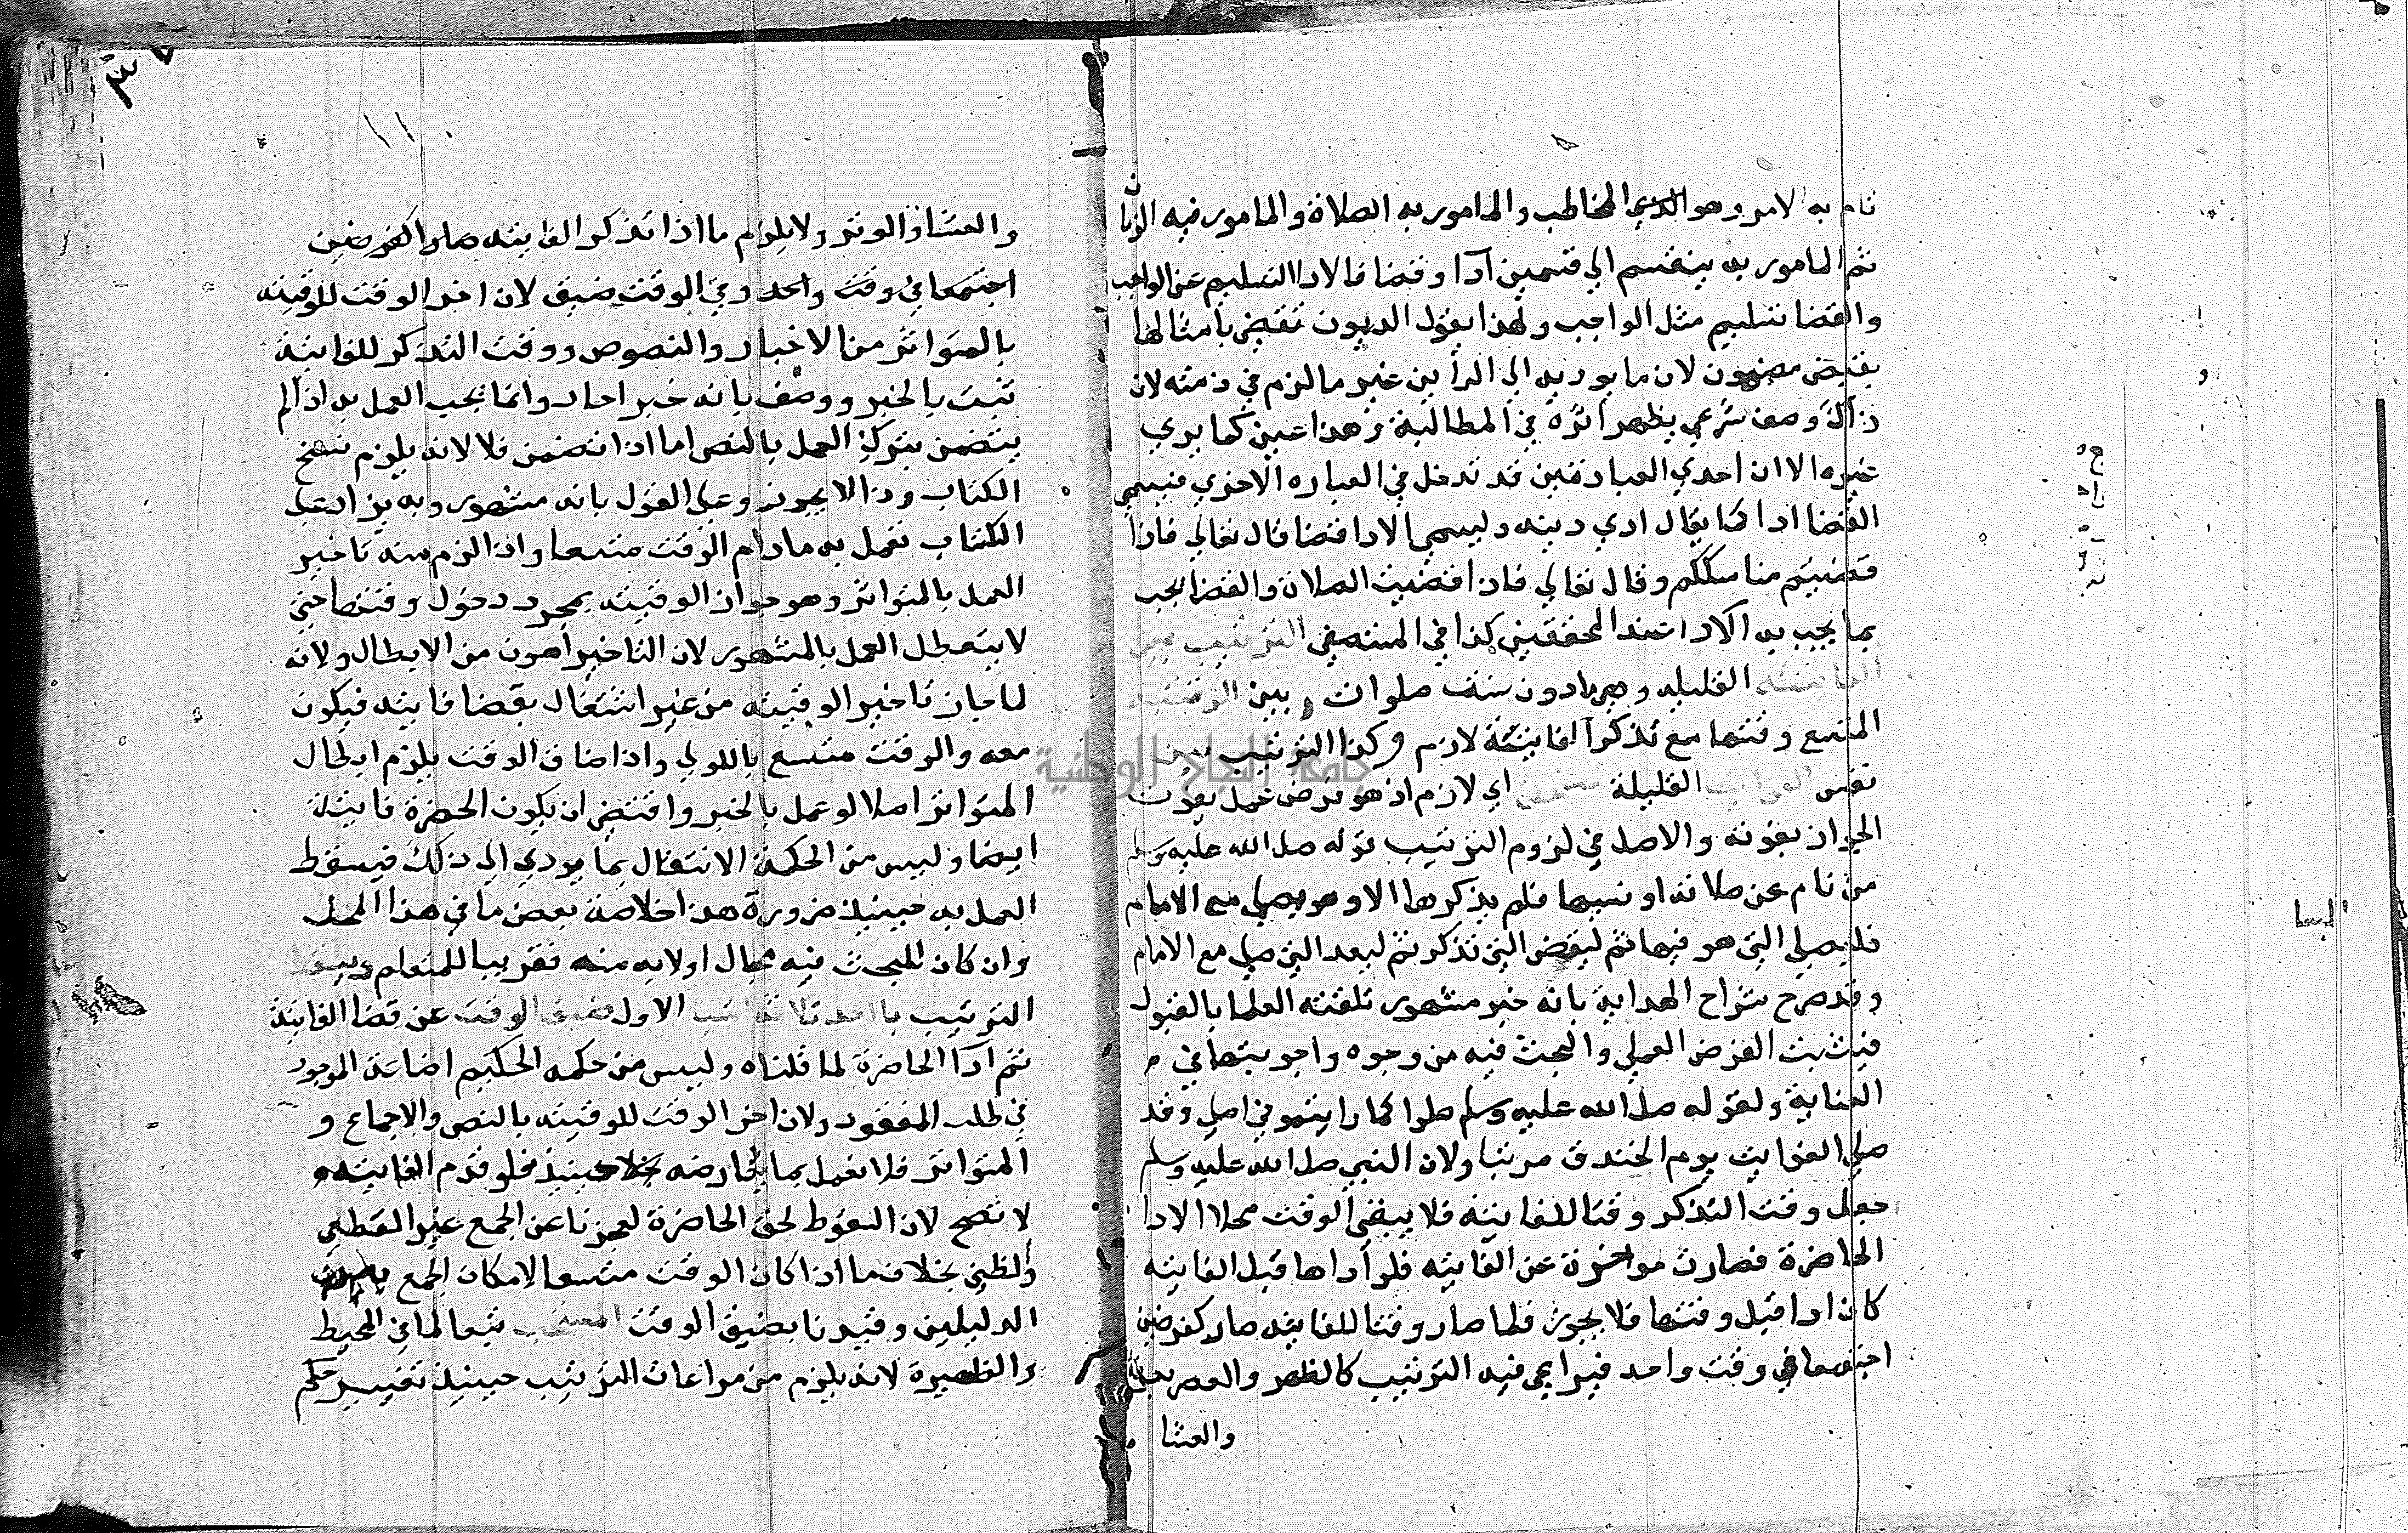 به الامر وهو الذي المخاطب والمامور به الصلاة والمامور فيه الزمان
ثم المامور به ينقسم الي قسمين ادا وقضا فالادا التسليم عن الواجب
والقضا تسليم مثل الواجب ولهذا يقول الديون تقضي بامثالها
مضمون لان ما يوديه الي الداين غير ما لزم في ذمته لان
ذاك وصف شرعي يظهر اثره في المطالبة وهذا عين كما يري
غيره الا ان احدي العبارتين قد تدخل في العباره الاخري فيسمي
القضا ادا كما يقال ادي دينه ويسمي الادا قضا قال تعالي فاذا
قضيتم مناسككم وقال تعالي فاذا قضيت الصلاة والقضا يجب
بما يجب به الادا عند المحققين كذا في المستصفي الترتيب بين
الفايته القليله وهي ما دون ست صلوات وبين الوقتيه
المتسع وقتها مع تذكر الفايتة لازم وكذا الترتيب بين
نفس الفوايت القليلة اي لازم اذ هو فرض عمل يفوت
الجواز بفوته والاصل في لزوم الترتيب قوله صلي الله عليه وسلم
من نام عن صلاته او نسيها فلم يذكرها الا وهو يصلي مع الامام
فليصلي التي هو فيها ثم ليقض التي تذكر ثم ليعد التي صلي مع الامام
وقد صرح شراح الهداية بانه خبر مشهور تلقته العلما بالقبول
فيثبت الفرض العملي والبحث فيه من وجوه واجوبتها في
العناية ولقوله صلي الله عليه وسلم صلوا كما رايتموني اصلي وقد
صلي الفوايت يوم الخندق مرتبا ولان النبي صلي الله عليه وسلم
جعل وقت التذكر وقتا للفايته فلا يبقي الوقت محلا الادا
الحاضرة فصارت مواخرة عن الفايته فلو اداها قبل الفايته
كان ادا قبل وقتها فلا يجوز فلما صار وقتا للفايته صار كفرضين
اجتمعا في وقت واحد فيراعي فيه الترتيب كالظهر والعصر بعرفة
والعشا
١١
والعشا والوتر ولا يلزم ما اذا تذكر الفايته صار الفرضين
اجتمعا في وقت واحد وفي الوقت ضيق لان اخر الوقت للوقيته
بالمتواتر من الاخبار والنصوص ووقت التذكر للفايتة
ثبت بالخبر ووصف بانه خبر احاد وانما يجب العمل به اذا لم
يتضمن بترك العمل بالنص اما اذا تضمن فلا لانه يلزم نسخ
الكتاب وذا لا يجوز وعلي القول بانه مشهور وبه يزاد علي
الكتاب نعمل به مادام الوقت متسعا واذا لزم منه تاخير
العمل بالمتواتر وهو جواز الوقتيه بمجرد دخول وقتها حتي
لا يتعطل العمل بالمشهور لان التاخير اهون من الابطال ولانه
لما جاز تاخير الوقتيه من غير اشتغال بقضا فايته فيكون
معه والوقت متسع بالاولي واذا ضاق الوقت يلزم ابطال
المتواتر اصلا لو عمل بالخبر واقتضي ان يكون الحضرة فايتة
ايضا وليس من الحكمة الانتقال بما يودي الي ذلك فيسقط
العمل به حينيذ ضرورة هذا خلاصة بعض ما في هذا المحل
وان كان للبحث فيه مجال اولايه منه تقريبا للمتعلم ويسقط
الترتيب باحد ثلاثة الاول ضيق الوقت عن قضا الفايتة
ثم ادا الحاضرة لما قلناه وليس من حكمه الحكيم اضاعة الموجود
في طلب المفقود ولان اخر الوقت للوقتيه بالنص والاجماع و
المتواتر فلا نعمل بما يعارضه حينيذ فلو قدم الفايته
لا تصح لان السقوط لحق الحاضرة لعجزنا عن الجمع غير القطعي
والظني بخلاف ما اذا كان الوقت متسعا لامكان الجمع
الدليلين وقيدنا بضيق الوقت المستحب تبعا لما في المحيط
والظهيرة لانه يلزم من مراعات الترتيب حينيذ تغيير حكم
جامعة النجاح الوطنية